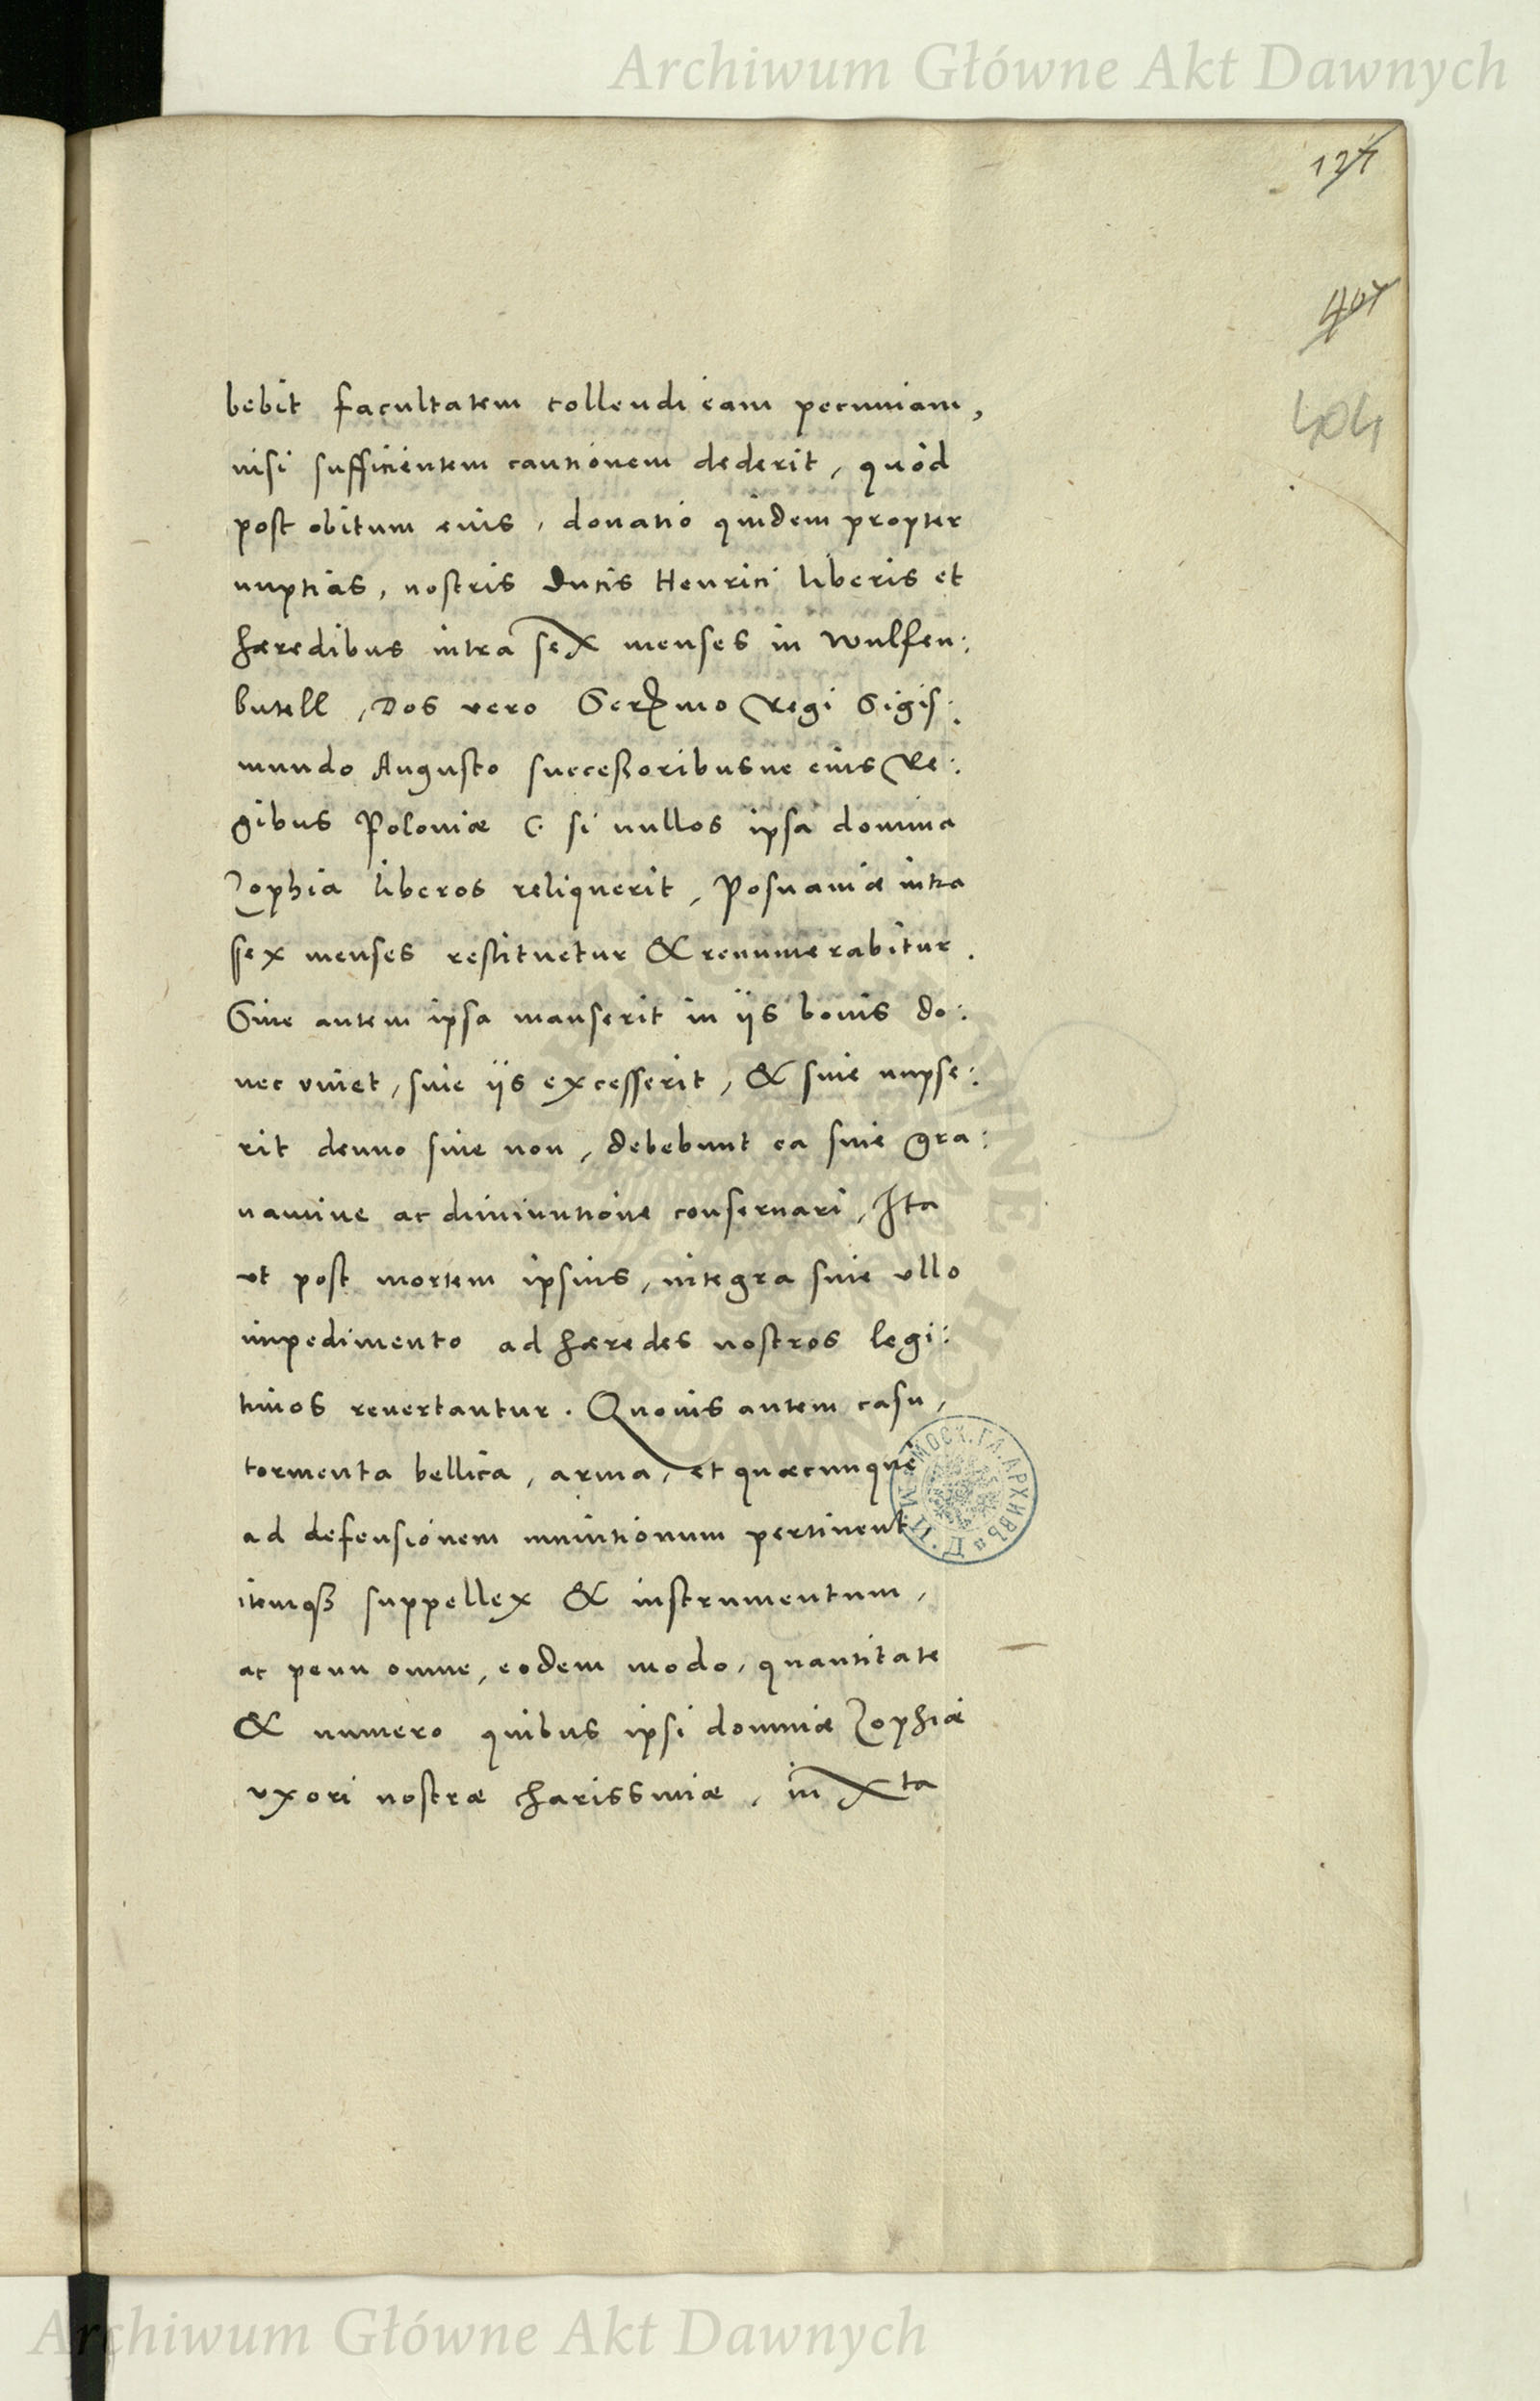 Archiwum Główne Akt Dawnych
404
bebit facultatem tollendi eam pecuniam,
nisi sufficientem cautionem dederit, quod
post obitum eius, donatio quidem propter
nuptias, nostris Ducis Henrici liberis et
hæredibus intra sex menses in Wulfen:
butell, Dos vero Serᵐᵒ Regi Sigis:
mundo Augusto successoribusue eius Re:
gibus Poloniæ &. si nullos ipsa domina
Zophia liberos reliquerit, Posnaniæ intra
sex menses restituetur & renumerabitur.
Siue autem ipsa manserit in ijs bonis do:
nec viuet, siue ijs excesserit, & siue nupse:
rit denuo siue non, debebunt ea sine gra:
uamine ac diminutione conseruari, Ita
vt post mortem ipsius, integra sine vllo
impedimento ad hæredes nostros legi:
timos reuertantur. Quouis autem casu,
tormenta bellica, arma, et quæcunque
ad defensionem munitionum pertinent
itemqꝫ suppellex & instrumentum,
ac penu omne, eodem modo, quantitate
& numero quibus ipsi dominæ Zophiæ
vxori nostræ charissimæ, in Xta
Archiwum Główne Akt Dawnych